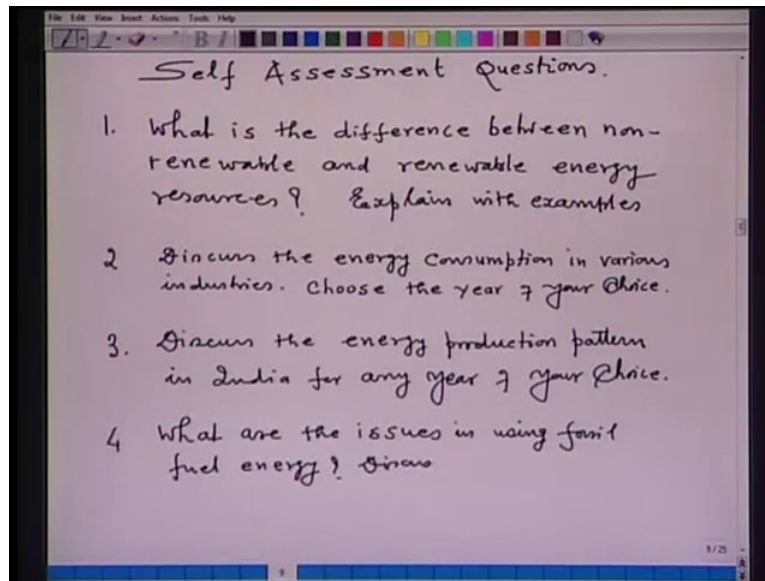 File Edit View Insert Actions Tools Help
Self Assessment Questions.
1. What is the difference between non-
renewable and renewable energy
resources? Explain with examples
2 Discuss the energy consumption in various
industries. Choose the year of your choice.
3. Discuss the energy production pattern
in India for any year of your choice.
4 What are the issues in using fossil
fuel energy? Discuss
9/25
9